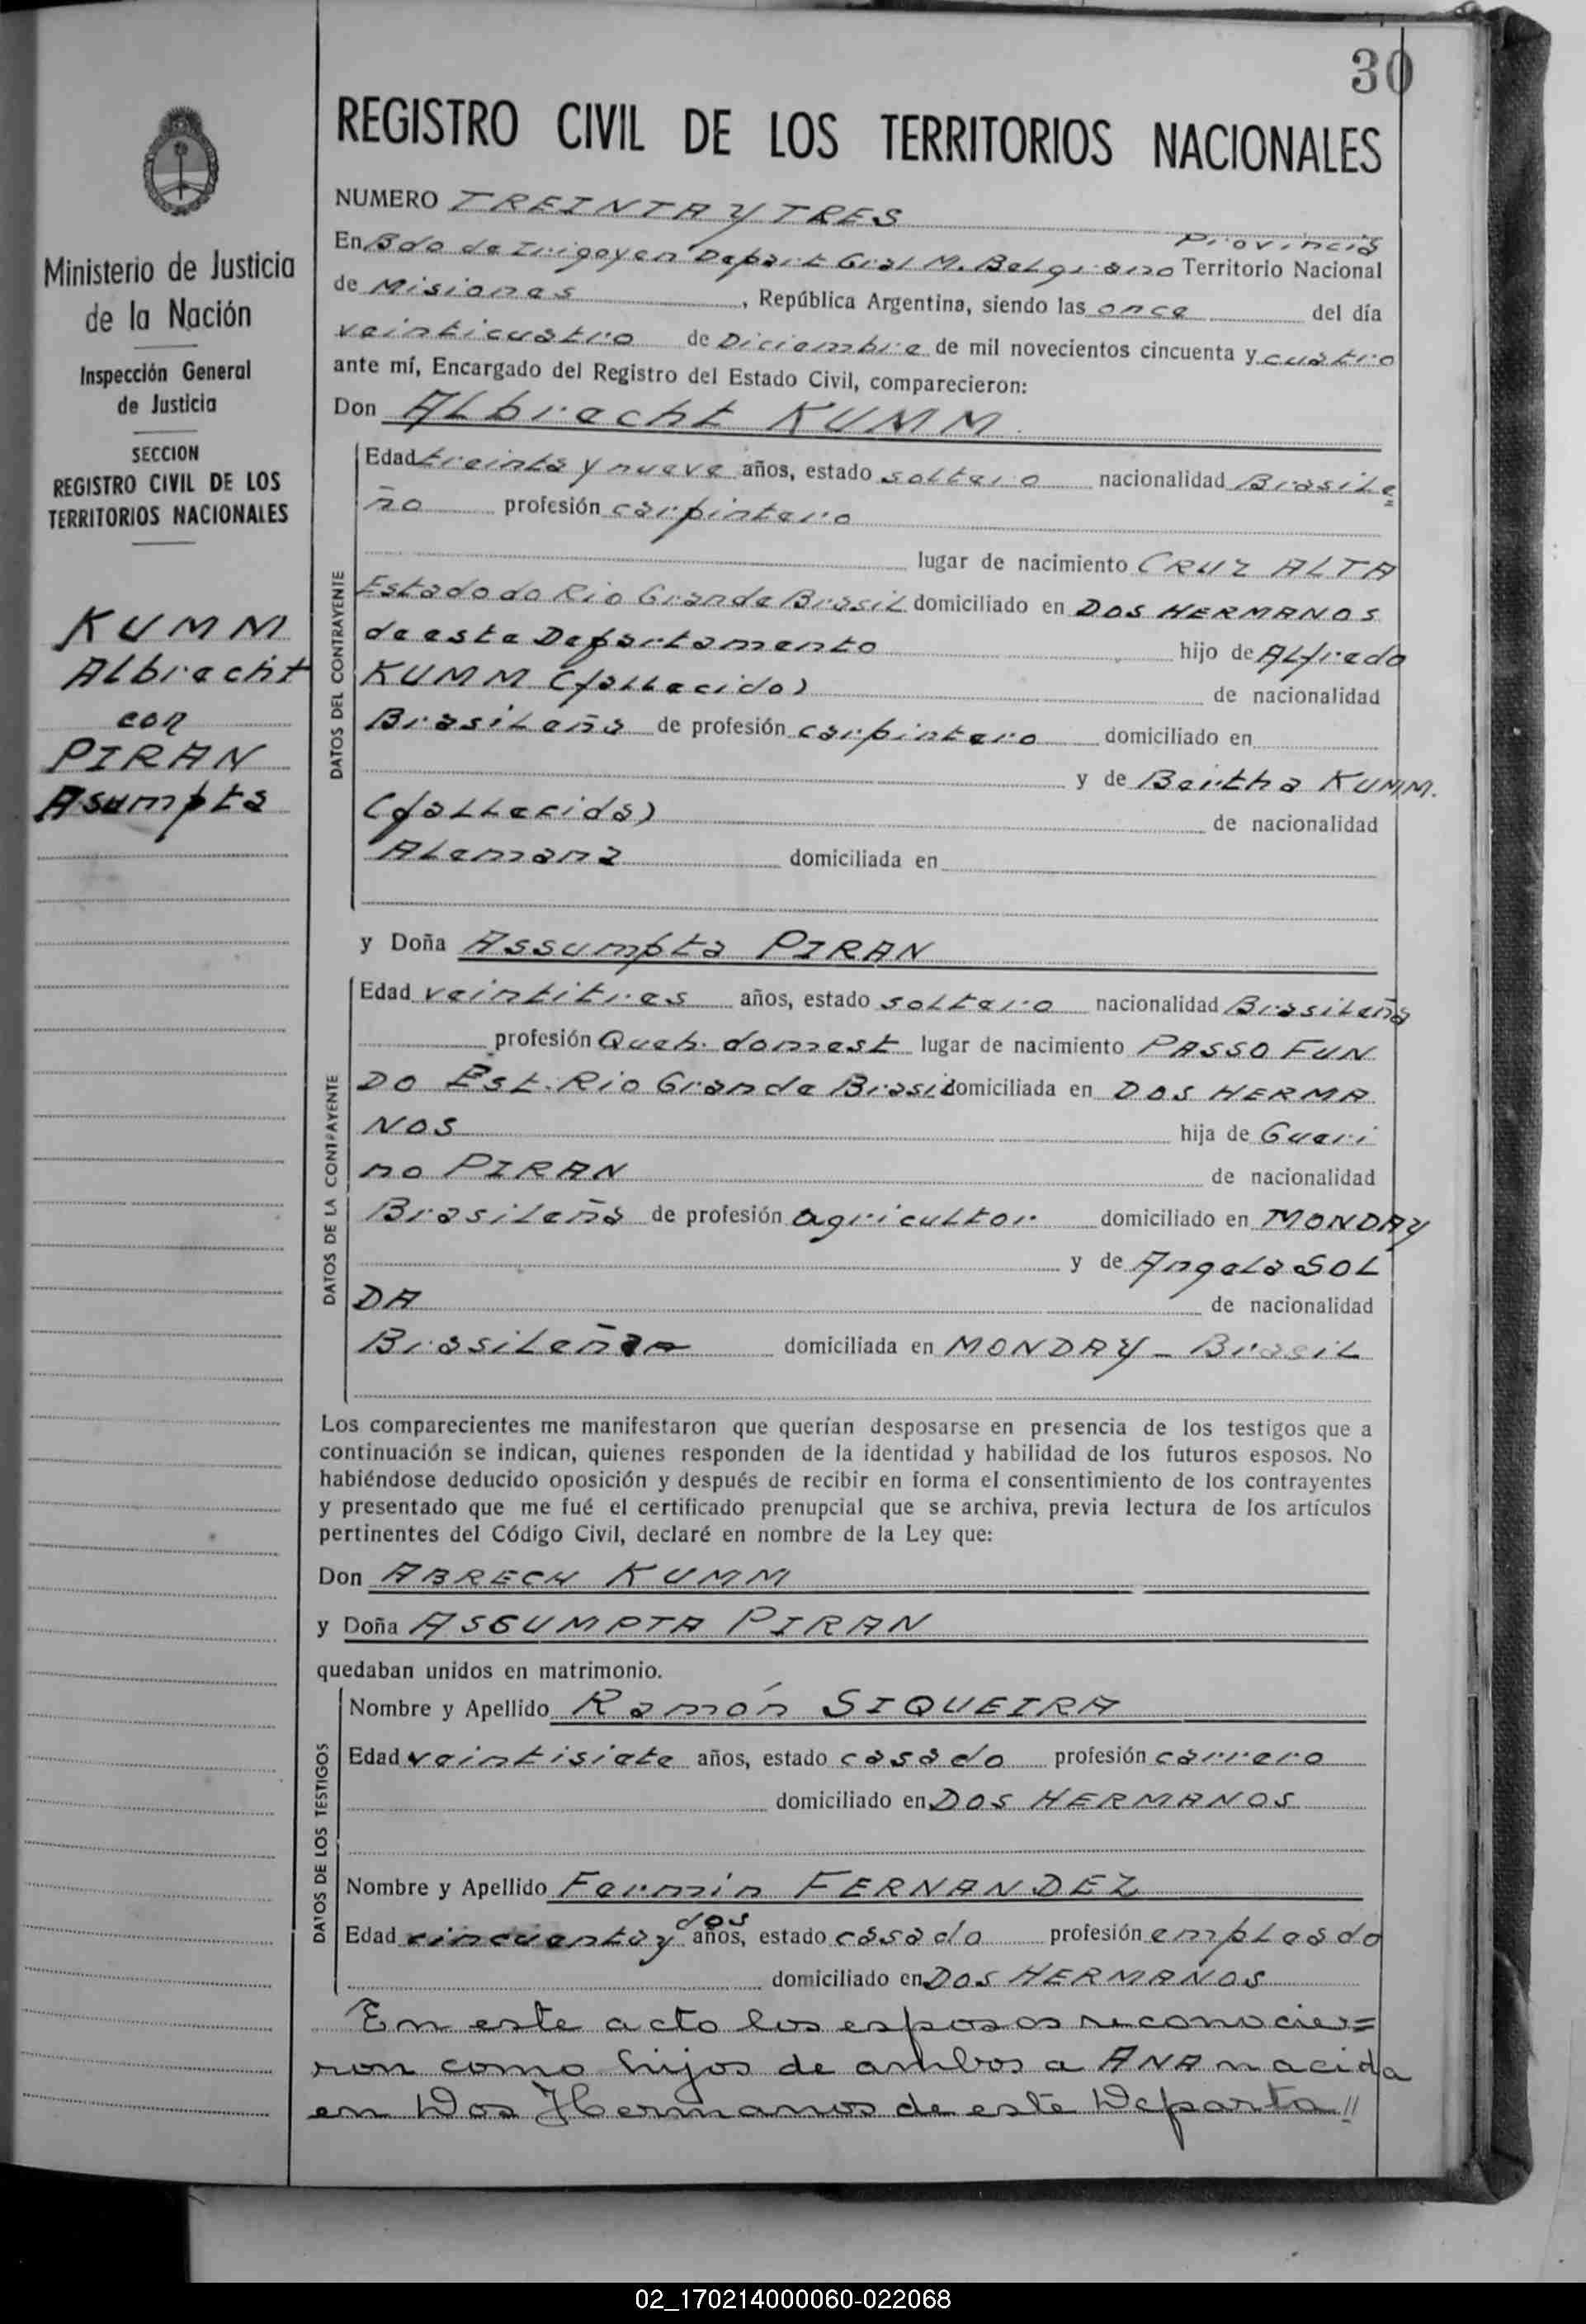 30
REGISTRO CIVIL DE LOS TERRITORIOS NACIONALES
Ministerio de Justicia
de la Nación
Inspección General
de Justicia
SECCION
REGISTRO CIVIL DE LOS
TERRITORIOS NACIONALES
KUMM
Albrecht
con
PIRAN
Asumpta
NUMERO TREINTA Y TRES
Provincia
En Bdo de Irigoyen Depart Gral M. Belgrano Territorio Nacional
de Misiones, República Argentina, siendo las once del día
veinticuatro de Diciembre de mil novecientos cincuenta y cuatro
ante mí, Encargado del Registro del Estado Civil, comparecieron:
Don Albrecht KUMM
DATOS DEL CONTRAYENTE
Edad treinta y nueve años, estado soltero nacionalidad Brasile
ño profesión carpintero
lugar de nacimiento CRUZ ALTA
Estado do Rio Grande Brasil domiciliado en DOS HERMANOS
de este Departamento hijo de Alfredo
KUMM (fallecido) de nacionalidad
Brasileña de profesión carpintero domiciliado en
y de Bertha KUMM.
(fallecida) de nacionalidad
Alemana domiciliada en
y Doña Assumpta PIRAN
DATOS DE LA CONTRAYENTE
Edad veintitres años, estado soltero nacionalidad Brasileña
profesión Queh. domest lugar de nacimiento PASSO FUN
DO Est. Rio Grande Brasil domiciliada en DOS HERMA
NOS hija de Gueri
no PIRAN de nacionalidad
Brasileña de profesión agricultor domiciliado en MONDAY
y de Angela SOL
DA de nacionalidad
Brasileña domiciliada en MONDAY - Brasil
Los comparecientes me manifestaron que querían desposarse en presencia de los testigos que a
continuación se indican, quienes responden de la identidad y habilidad de los futuros esposos. No
habiéndose deducido oposición y después de recibir en forma el consentimiento de los contrayentes
y presentado que me fué el certificado prenupcial que se archiva, previa lectura de los artículos
pertinentes del Código Civil, declaré en nombre de la Ley que:
Don ABRECH KUMM
y Doña ASSUMPTA PIRAN
quedaban unidos en matrimonio.
DATOS DE LOS TESTIGOS
Nombre y Apellido Ramón SIQUEIRA
Edad veintisiete años, estado casado profesión carrero
domiciliado en DOS HERMANOS
Nombre y Apellido Fermin FERNANDEZ
dos
Edad cincuenta y años, estado casado profesión empleado
domiciliado en DOS HERMANOS
En este acto los esposos reconocie=
ron como hijos de ambos a ANA nacida
en Dos Hermanos de este Departa"
02_170214000060-022068